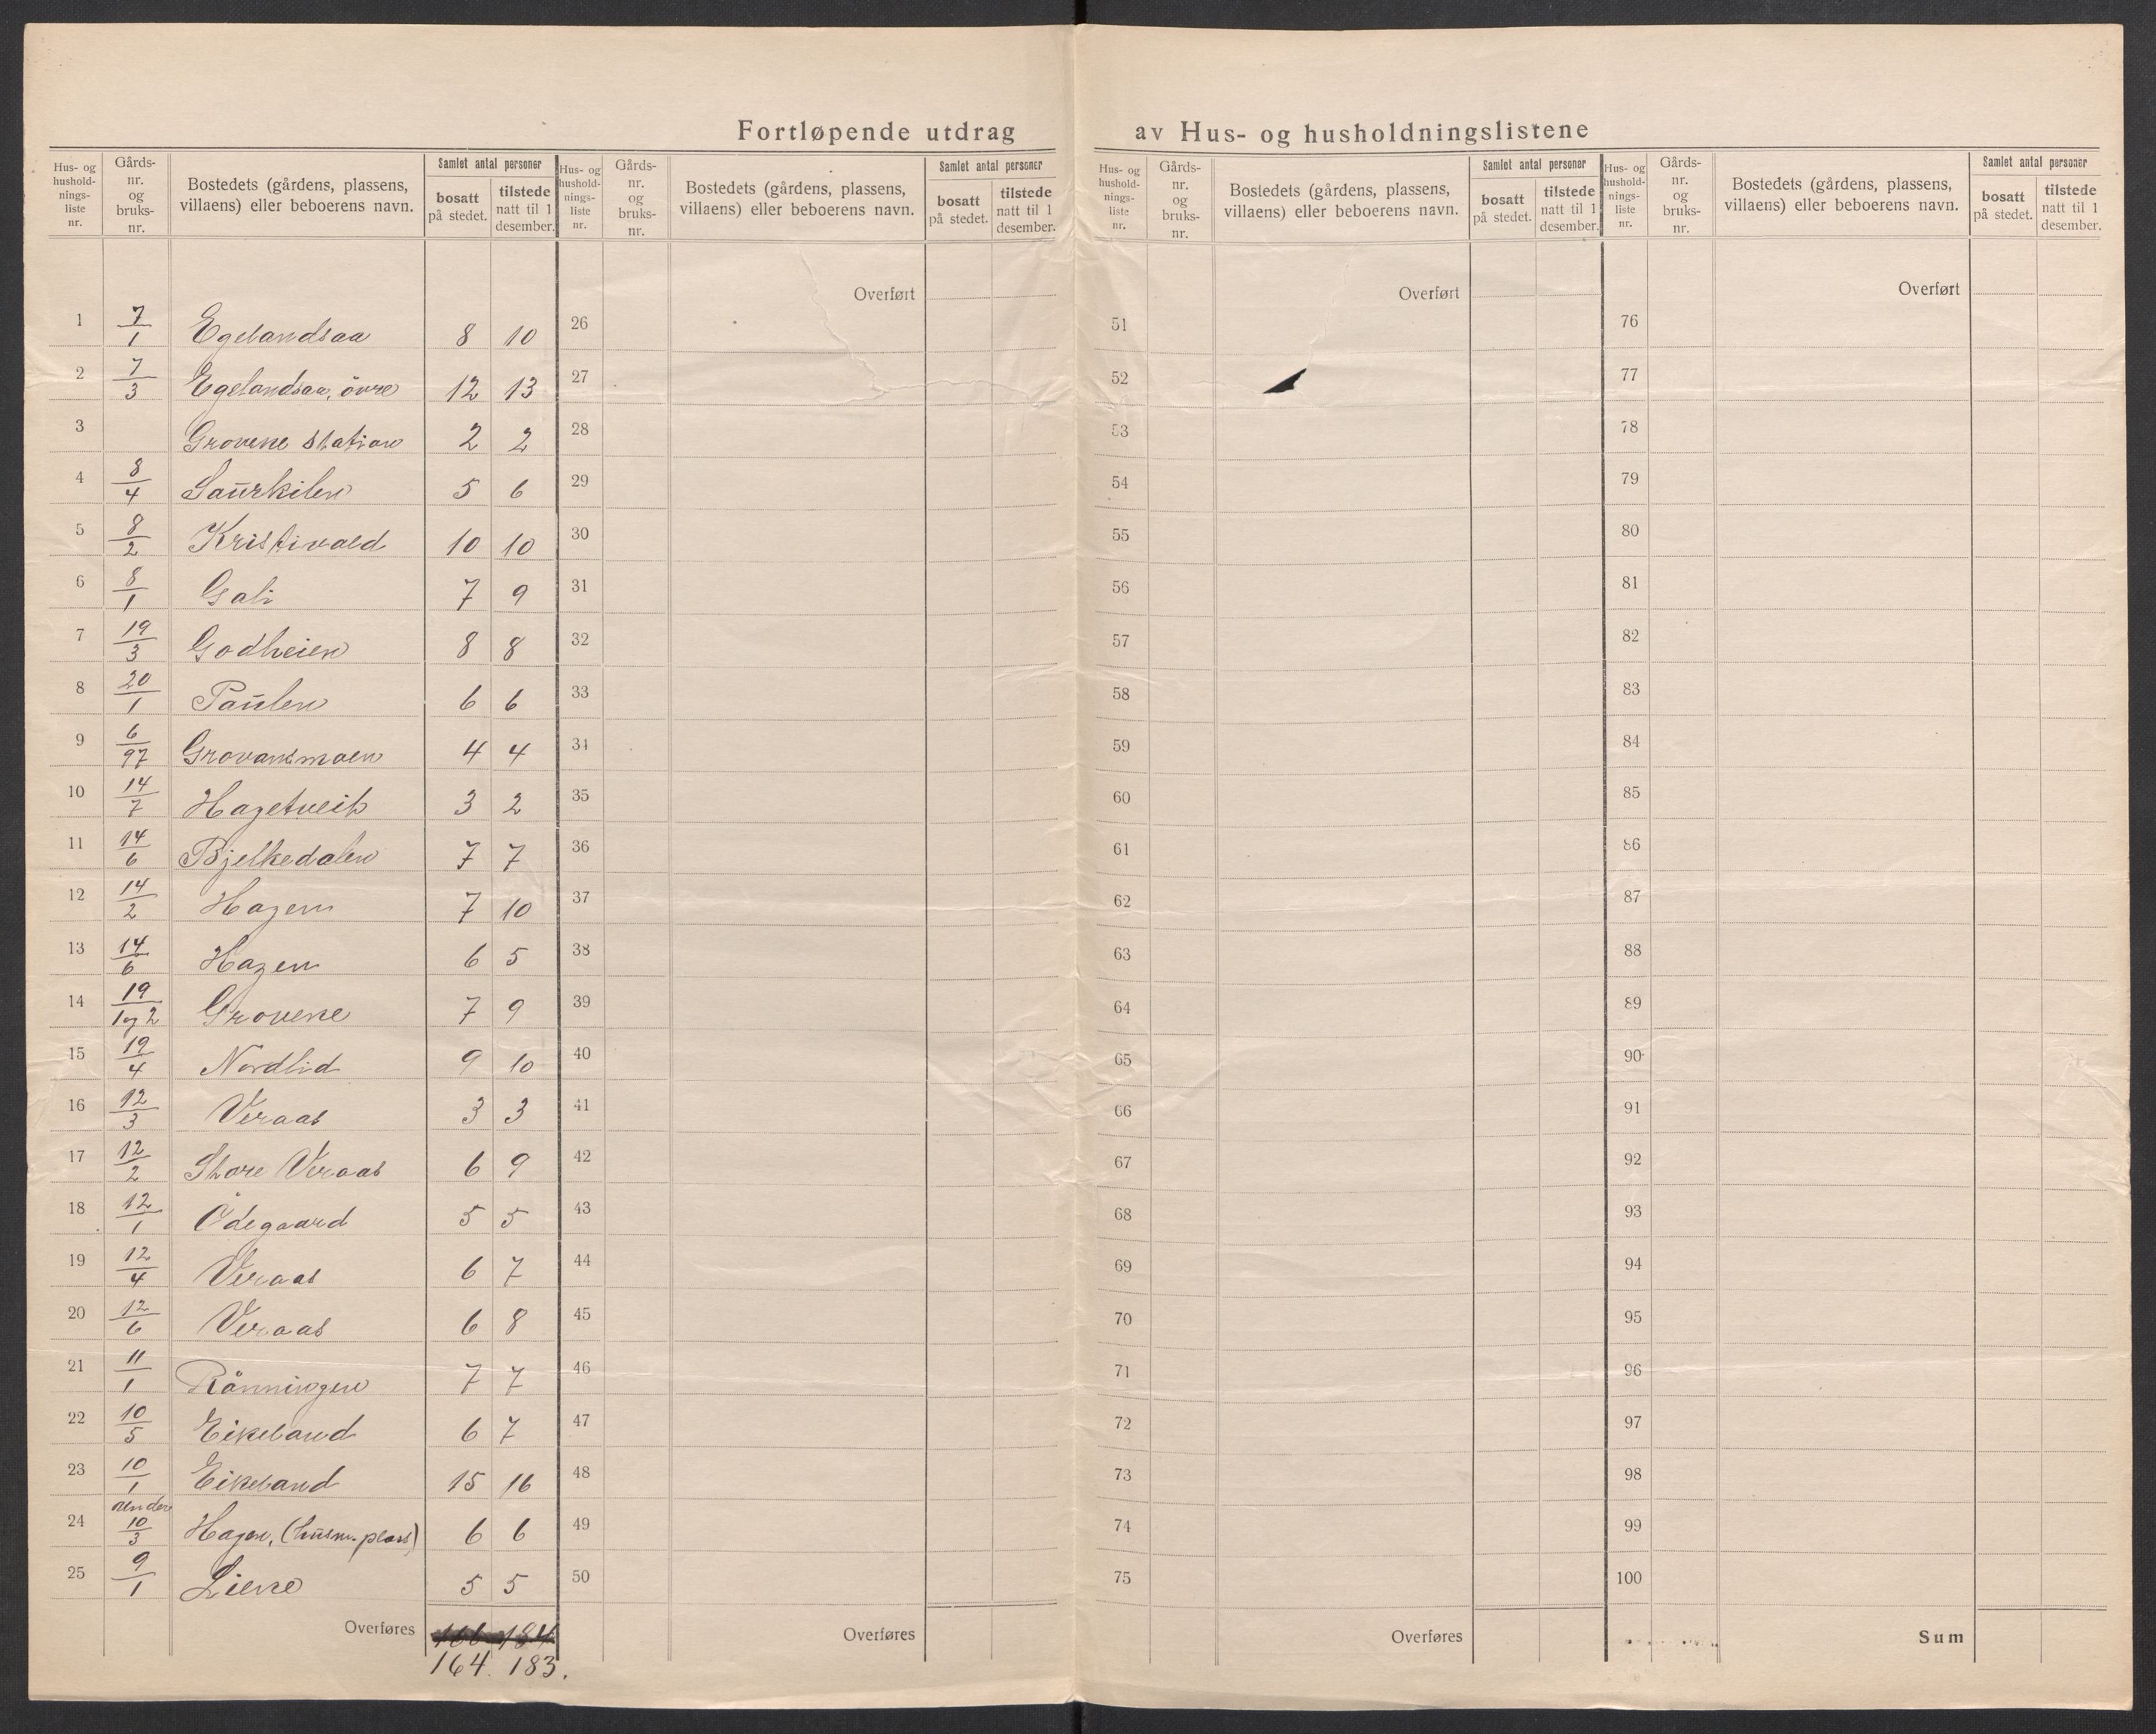 Fortløpende utdrag av Hus- og husholdningslistene
Hus- og husholdnings-liste nr. | Gårds-nr. og bruks-nr. | Bostedets (gårdens, plassens, villaens) eller beboerens navn. | Samlet antal personer bosatt på stedet. | tilstede natt til 1 desember.
1 7/1 Egelandsaa 8 10
2 7/3 Egelandsaa, övre 12 13
3 Grovene station 2 2
4 8/4 Saurkilen 5 6
5 8/2 Kristivold 10 10
6 8/1 Gali 7 9
7 19/3 Godheien 8 8
8 20/1 Paulen 6 6
9 6/97 Grovansmoen 4 4
10 14/7 Hagetveit 3 2
11 14/6 Bjelkedalen 7 7
12 14/2 Hagen 7 10
13 14/6 Hagen 6 5
14 19/1og2 Grovene 7 9
15 19/4 Nordlid 9 10
16 12/3 Veraas 3 3
17 12/2 Store Veraas 6 9
18 12/1 Ödegaard 5 5
19 12/4 Veraas 6 7
20 12/6 Veraas 6 8
21 11/1 Rönningen 7 7
22 10/5 Eikeland 6 7
23 10/1 Eikeland 15 16
24 under 10/3 Hagen, (husm. plass) 6 6
25 9/1 Liene 5 5
Overføres 166 184
164. 183.
Hus- og husholdnings-liste nr. | Gårds-nr. og bruks-nr. | Bostedets (gårdens, plassens, villaens) eller beboerens navn. | Samlet antal personer bosatt på stedet. | tilstede natt til 1 desember.
Overført
26
27
28
29
30
31
32
33
34
35
36
37
38
39
40
41
42
43
44
45
46
47
48
49
50
Overføres
Hus- og husholdnings-liste nr. | Gårds-nr. og bruks-nr. | Bostedets (gårdens, plassens, villaens) eller beboerens navn. | Samlet antal personer bosatt på stedet. | tilstede natt til 1 desember.
Overført
51
52
53
54
55
56
57
58
59
60
61
62
63
64
65
66
67
68
69
70
71
72
73
74
75
Overføres
Hus- og husholdnings-liste nr. | Gårds-nr. og bruks-nr. | Bostedets (gårdens, plassens, villaens) eller beboerens navn. | Samlet antal personer bosatt på stedet. | tilstede natt til 1 desember.
Overført
76
77
78
79
80
81
82
83
84
85
86
87
88
89
90
91
92
93
94
95
96
97
98
99
100
Sum